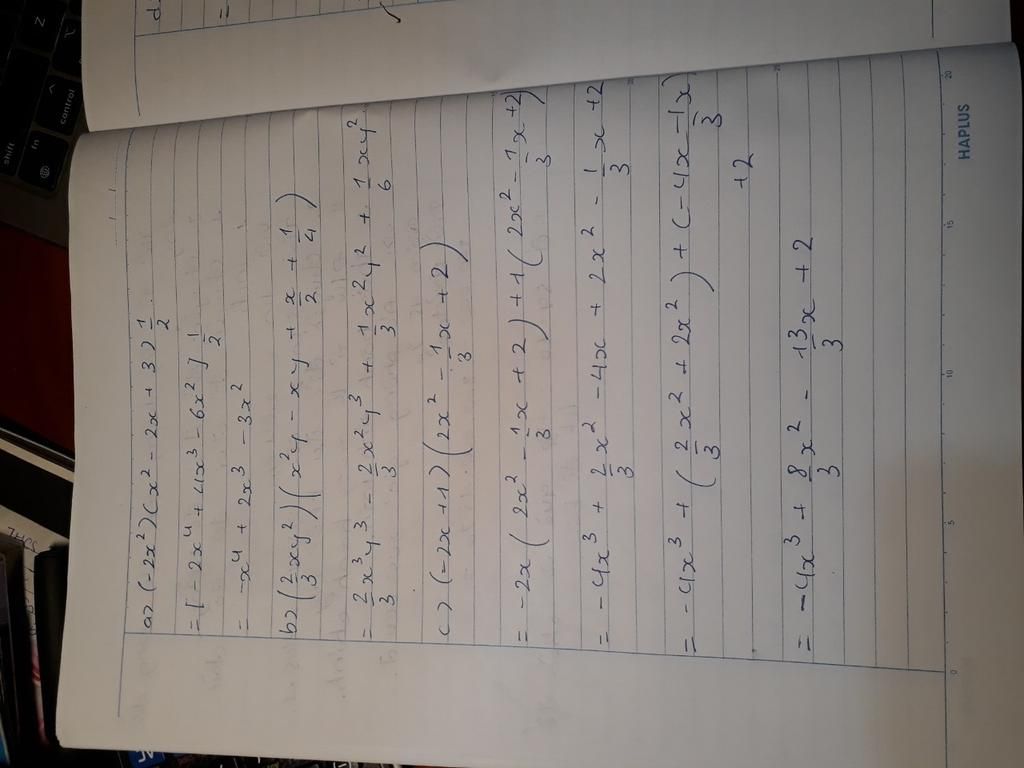 a> (-2x²)(x² - 2x + 3) 1/2
= [-2x⁴ + 4x³ - 6x²] 1/2
= -x⁴ + 2x³ - 3x²
b> (2/3 xy²)(x²y - xy + x/2 + 1/4)
= 2/3 x³y³ - 2/3 x²y³ + 1/3 x²y² + 1/6 xy²
c> (-2x + 1)(2x² - 1/3 x + 2)
= -2x(2x² - 1/3 x + 2) + 1(2x² - 1/3 x + 2)
= -4x³ + 2/3 x² - 4x + 2x² - 1/3 x + 2
= -4x³ + (2/3 x² + 2x²) + (-4x - 1/3 x)
+2
= -4x³ + 8/3 x² - 13/3 x + 2
HAPLUS
0 5 10 15 20
shift
fn
control
Z
d
=